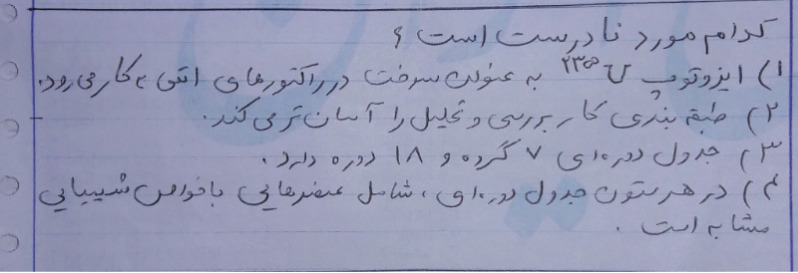 کدام مورد نادرست است؟
۱) ایزوتوپ ²³⁵U به عنوان سوخت در راکتورهای اتمی به کار می‌رود.
۲) طبقه بندی کار بررسی و تحلیل را آسان تر می کند.
۳) جدول دوره‌ای ۷ گروه و ۱۸ دوره دارد.
۴) در هر ستون جدول دوره‌ای، شامل عنصرهایی با خواص شیمیایی
مشابه است.